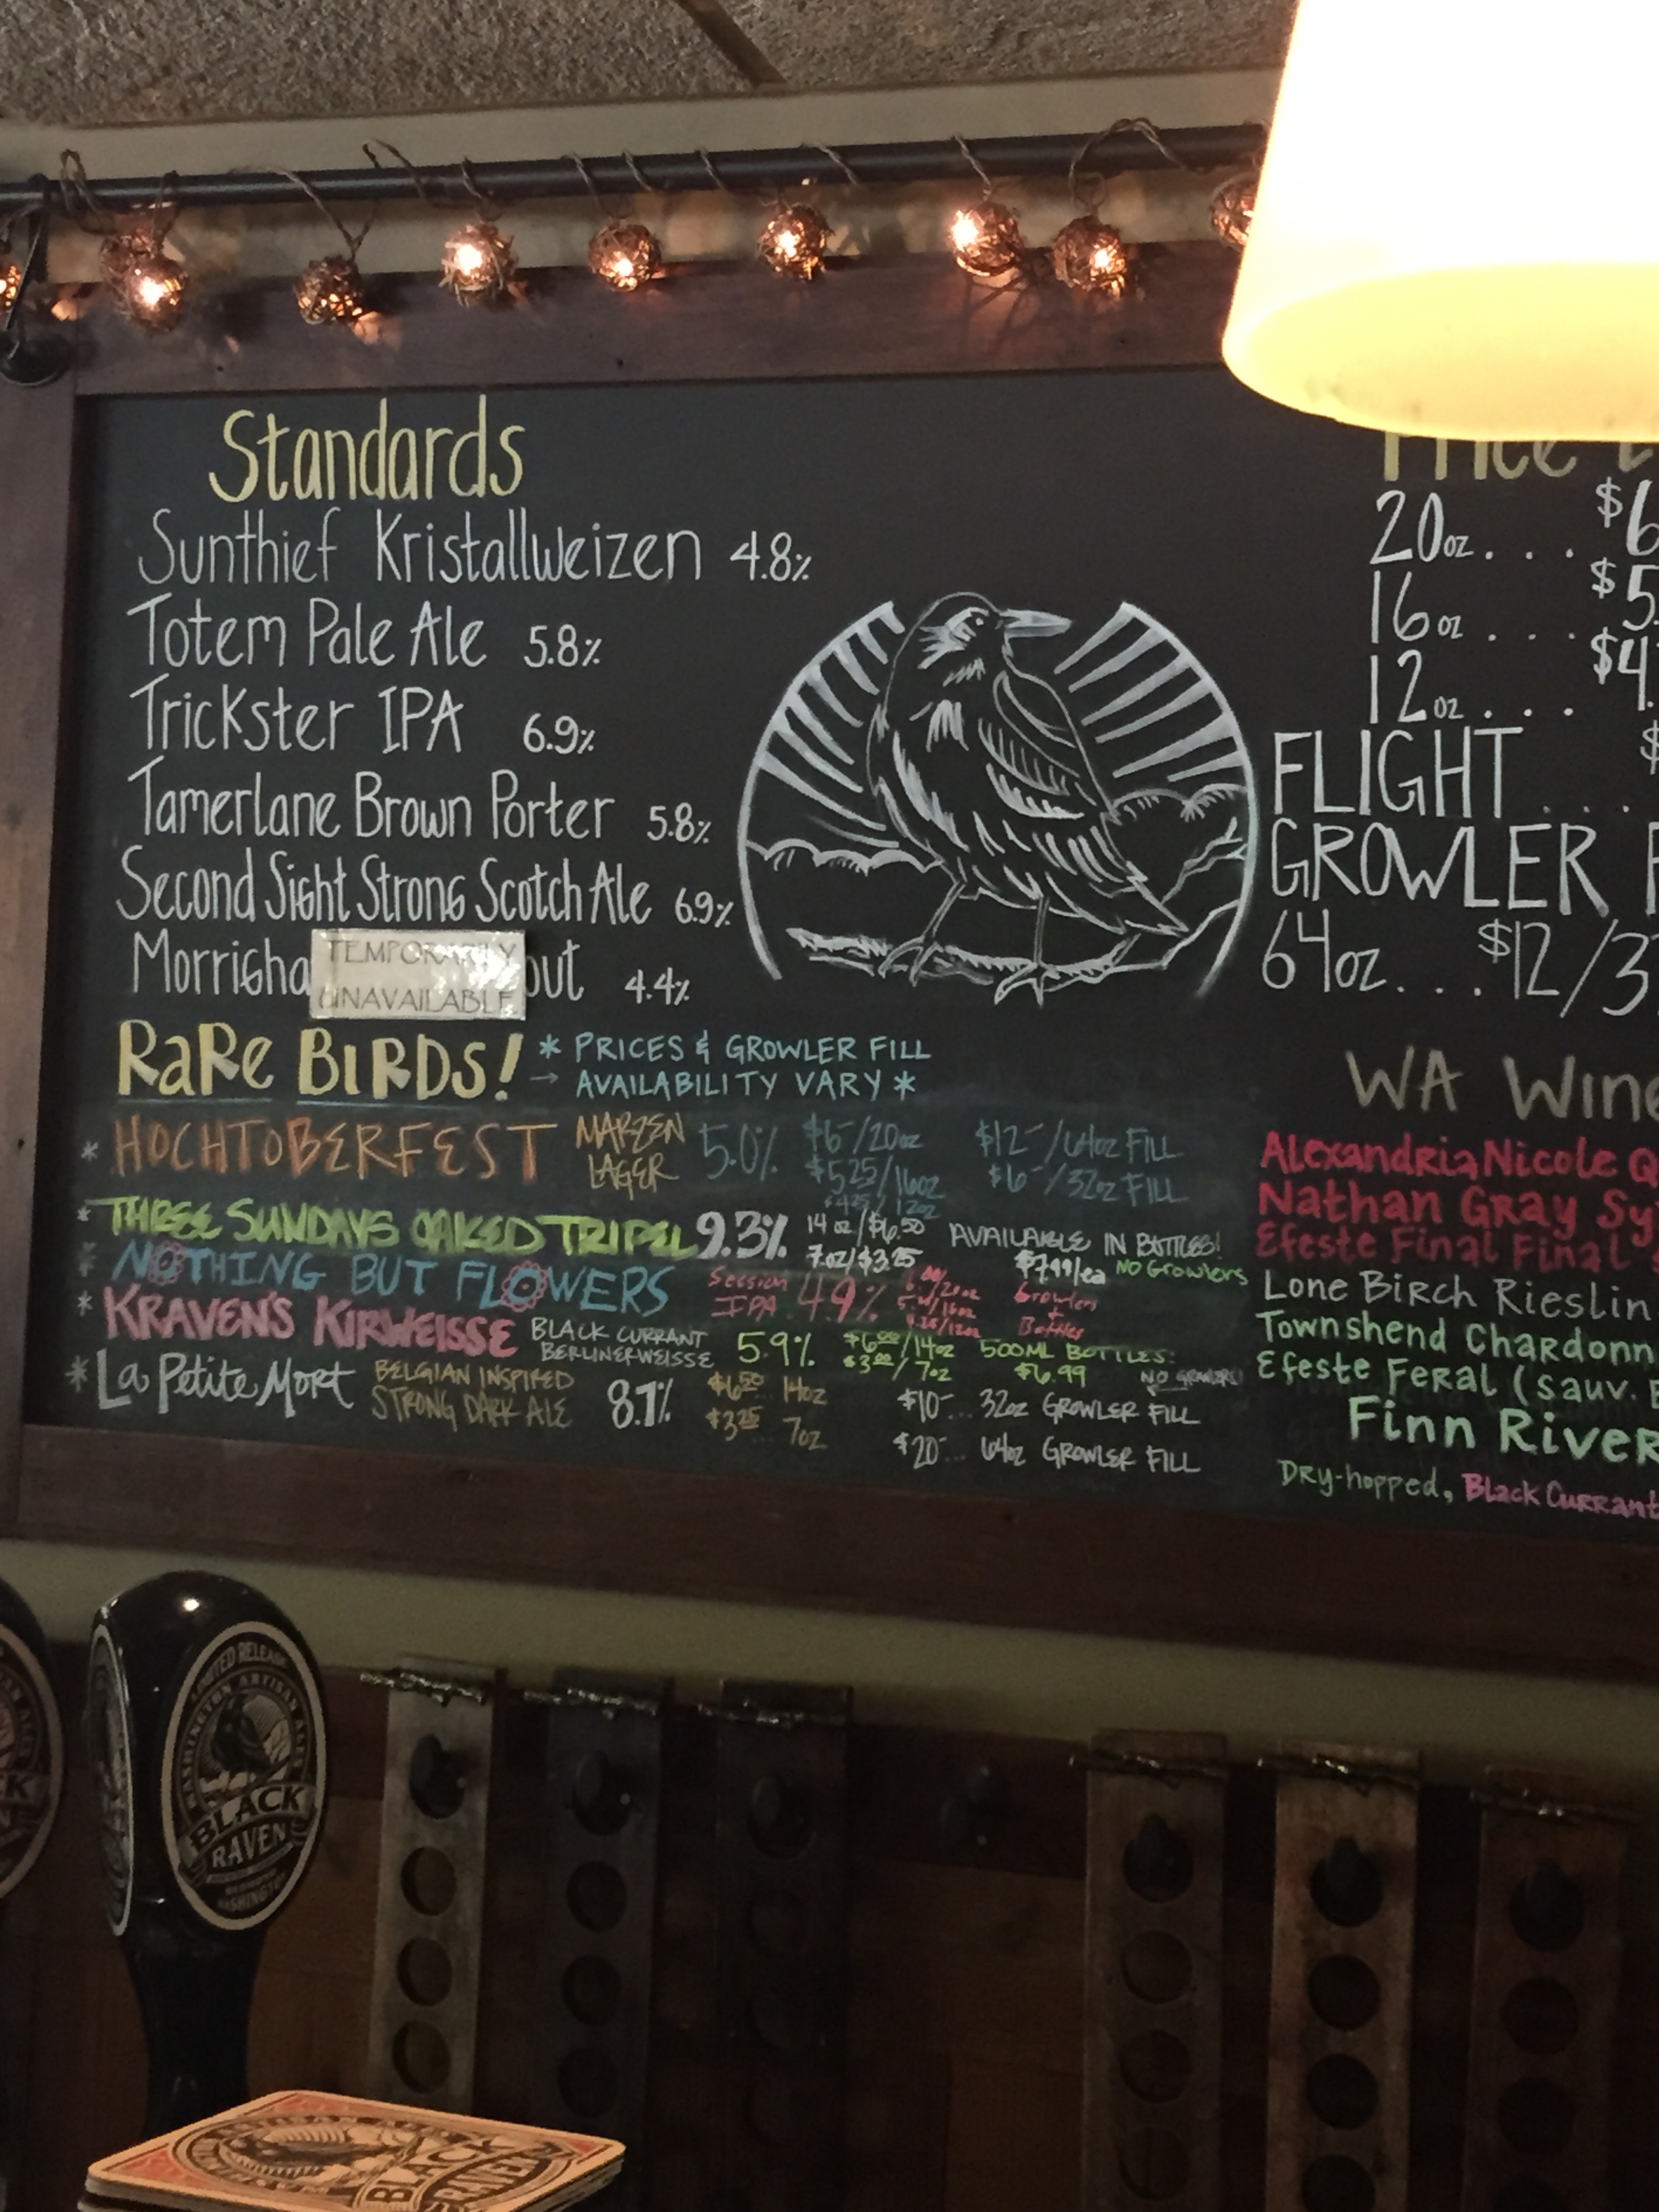 Standards
Sunthief Kristallweizen 4.8%
Totem Pale Ale 5.8%
Trickster IPA 6.9%
Tamerlane Brown Porter 5.8%
Second Sight Strong Scotch Ale 6.9%
Morrigha out 4.4%
TEMPORARILY
UNAVAILABLE
RaRe BIRDs! * PRICES & GROWLER FILL
→ AVAILABILITY VARY *
* HOCHTOBERFEST MARZEN LAGER 5.0% $6-/20oz $12-/64oz FILL
$5.25/16oz $6-/32oz FILL
$4.25/12oz
* THREE SUNDAYS OAKED TRIPEL 9.3% 14oz/$6.50 AVAILABLE IN BOTTLES!
7oz/$3.25 $7.99/ea NO GROWlers
* NOTHING BUT FLOWERS Session IPA 4.9% Growlers + Bottles
* KRAVEN'S KIRWEISSE BLACK CURRANT BERLINERWEISSE 5.9% $6.00/14oz 500ML BOTTLES:
$3.00/7oz $6.99 NO GROWLERS!
* La Petite Mort BELGIAN INSPIRED STRONG DARK ALE 8.1% $6.50 14oz $10-... 32oz GROWLER FILL
$3.25... 7oz $20-... 64oz GROWLER FILL
Price
20oz. . . $6
16oz . . . $5.
12oz . . . $4.
FLIGHT . . . $
GROWLER F
64oz. . . $12/3
WA Wine
Alexandria Nicole Q
Nathan Gray Sy
Efeste Final Final
Lone Birch Rieslin
Townshend Chardonn
Efeste Feral (Sauv. B
Finn River
Dry-hopped, Black Currant
LIMITED RELEASE
WASHINGTON ARTISAN ALES
BLACK
RAVEN
WASHINGTON
BLACK
RAVEN